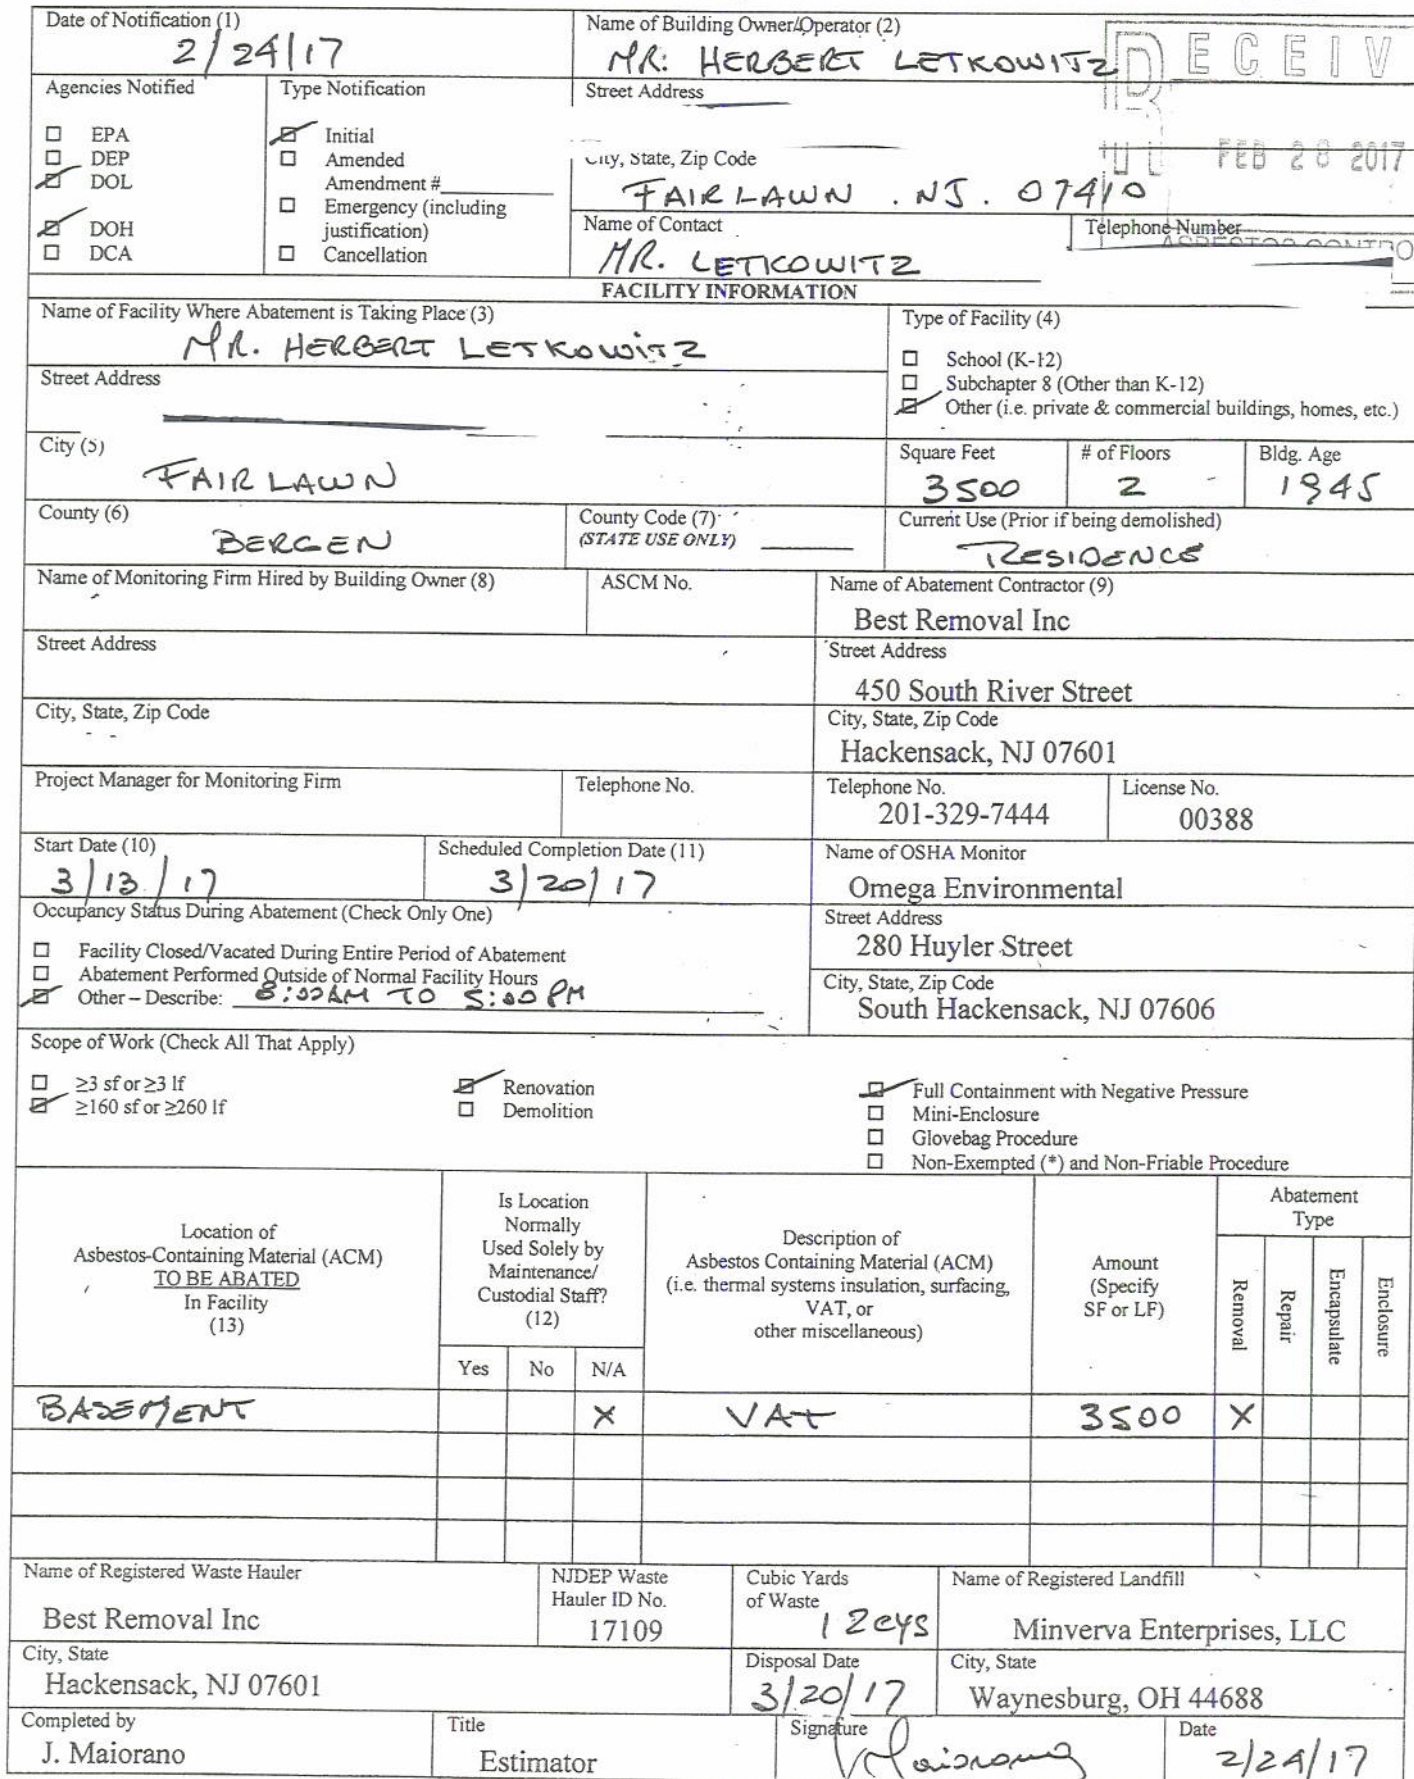 Date of Notification (1)
2/24/17
Name of Building Owner/Operator (2)
MR. HERBERT LETKOWITZ
RECEIV
Agencies Notified
EPA
DEP
DOL
DOH
DCA
Type Notification
Initial
Amended
Amendment #
Emergency (including
justification)
Cancellation
Street Address
City, State, Zip Code
FAIR LAWN . NJ. 07410
FEB 28 2017
Name of Contact
MR. LETKOWITZ
Telephone Number
ASBESTOS CONTRO
FACILITY INFORMATION
Name of Facility Where Abatement is Taking Place (3)
MR. HERBERT LETKOWITZ
Type of Facility (4)
School (K-12)
Subchapter 8 (Other than K-12)
Other (i.e. private & commercial buildings, homes, etc.)
Street Address
City (5)
FAIR LAWN
Square Feet
3500
# of Floors
2
Bldg. Age
1945
County (6)
BERGEN
County Code (7)
(STATE USE ONLY)
Current Use (Prior if being demolished)
RESIDENCE
Name of Monitoring Firm Hired by Building Owner (8)
ASCM No.
Name of Abatement Contractor (9)
Best Removal Inc
Street Address
Street Address
450 South River Street
City, State, Zip Code
City, State, Zip Code
Hackensack, NJ 07601
Project Manager for Monitoring Firm
Telephone No.
Telephone No.
201-329-7444
License No.
00388
Start Date (10)
3/13/17
Scheduled Completion Date (11)
3/20/17
Name of OSHA Monitor
Omega Environmental
Occupancy Status During Abatement (Check Only One)
Facility Closed/Vacated During Entire Period of Abatement
Abatement Performed Outside of Normal Facility Hours
Other – Describe: 8:00AM TO 5:00 PM
Street Address
280 Huyler Street
City, State, Zip Code
South Hackensack, NJ 07606
Scope of Work (Check All That Apply)
≥3 sf or ≥3 lf
≥160 sf or ≥260 lf
Renovation
Demolition
Full Containment with Negative Pressure
Mini-Enclosure
Glovebag Procedure
Non-Exempted (*) and Non-Friable Procedure
Location of
Asbestos-Containing Material (ACM)
TO BE ABATED
In Facility
(13)
Is Location
Normally
Used Solely by
Maintenance/
Custodial Staff?
(12)
Yes No N/A
Description of
Asbestos Containing Material (ACM)
(i.e. thermal systems insulation, surfacing,
VAT, or
other miscellaneous)
Amount
(Specify
SF or LF)
Abatement
Type
Removal
Repair
Encapsulate
Enclosure
BASEMENT X VAT 3500 X
Name of Registered Waste Hauler
Best Removal Inc
NJDEP Waste
Hauler ID No.
17109
Cubic Yards
of Waste
12 cys
Name of Registered Landfill
Minverva Enterprises, LLC
City, State
Hackensack, NJ 07601
Disposal Date
3/20/17
City, State
Waynesburg, OH 44688
Completed by
J. Maiorano
Title
Estimator
Signature
Maiorano
Date
2/24/17